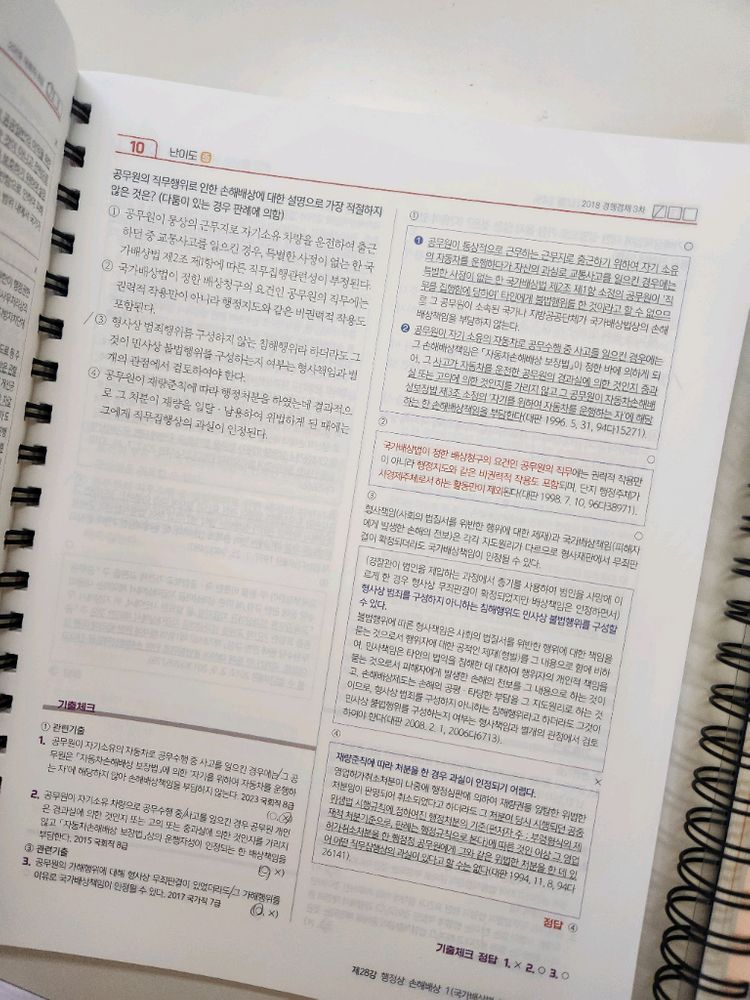 10 난이도 중
공무원의 직무행위로 인한 손해배상에 대한 설명으로 가장 적절하지
않은 것은? (다툼이 있는 경우 판례에 의함)
① 공무원이 통상의 근무지로 자기소유 차량을 운전하여 출근
하던 중 교통사고를 일으킨 경우, 특별한 사정이 없는 한 국
가배상법 제2조 제1항에 따른 직무집행관련성이 부정된다.
② 국가배상법이 정한 배상청구의 요건인 공무원의 직무에는
권력적 작용만이 아니라 행정지도와 같은 비권력적 작용도
포함된다.
③ 형사상 범죄행위를 구성하지 않는 침해행위라 하더라도 그
것이 민사상 불법행위를 구성하는지 여부는 형사책임과 별
개의 관점에서 검토하여야 한다.
④ 공무원이 재량준칙에 따라 행정처분을 하였는데 결과적으
로 그 처분이 재량을 일탈·남용하여 위법하게 된 때에는
그에게 직무집행상의 과실이 인정된다.
기출체크
① 관련기출
1. 공무원이 자기소유의 자동차로 공무수행 중 사고를 일으킨 경우에는 그 공
무원은 「자동차손해배상 보장법」에 의한 '자기를 위하여 자동차를 운행하
는 자'에 해당하지 않아 손해배상책임을 부담하지 않는다. 2023 국회직 8급
(○, ×)
2. 공무원이 자기소유 차량으로 공무수행 중 사고를 일으킨 경우 공무원 개인
은 경과실에 의한 것인지 또는 고의 또는 중과실에 의한 것인지를 가리지
않고 「자동차손해배상 보장법」상의 운행자성이 인정되는 한 배상책임을
부담한다. 2015 국회직 8급
(○, ×)
③ 관련기출
3. 공무원의 가해행위에 대해 형사상 무죄판결이 있었더라도 그 가해행위를
이유로 국가배상책임이 인정될 수 있다. 2017 국가직 7급
(○, ×)
2018 경행경채 3차
① ○
❶ 공무원이 통상적으로 근무하는 근무지로 출근하기 위하여 자기 소유
의 자동차를 운행하다가 자신의 과실로 교통사고를 일으킨 경우에는
특별한 사정이 없는 한 국가배상법 제2조 제1항 소정의 공무원이 '직
무를 집행함에 당하여' 타인에게 불법행위를 한 것이라고 할 수 없으므
로 그 공무원이 소속된 국가나 지방공공단체가 국가배상법상의 손해
배상책임을 부담하지 않는다.
❷ 공무원이 자기 소유의 자동차로 공무수행 중 사고를 일으킨 경우에는
그 손해배상책임은 「자동차손해배상 보장법」이 정한 바에 의하게 되
어, 그 사고가 자동차를 운전한 공무원의 경과실에 의한 것인지 중과
실 또는 고의에 의한 것인지를 가리지 않고 그 공무원이 자동차손해배
상보장법 제3조 소정의 '자기를 위하여 자동차를 운행하는 자'에 해당
하는 한 손해배상책임을 부담한다(대판 1996. 5. 31, 94다15271).
② ○
국가배상법이 정한 배상청구의 요건인 공무원의 직무에는 권력적 작용만
이 아니라 행정지도와 같은 비권력적 작용도 포함되며, 단지 행정주체가
사경제주체로서 하는 활동만이 제외된다(대판 1998. 7. 10, 96다38971).
③ ○
형사책임(사회의 법질서를 위반한 행위에 대한 제재)과 국가배상책임(피해자
에게 발생한 손해의 전보)은 각각 지도원리가 다르므로 형사재판에서 무죄판
결이 확정되더라도 국가배상책임이 인정될 수 있다.
(경찰관이 범인을 제압하는 과정에서 총기를 사용하여 범인을 사망에 이
르게 한 경우 형사상 무죄판결이 확정되었지만 배상책임은 인정하면서)
형사상 범죄를 구성하지 아니하는 침해행위도 민사상 불법행위를 구성할
수 있다.
불법행위에 따른 형사책임은 사회의 법질서를 위반한 행위에 대한 책임을
묻는 것으로서 행위자에 대한 공적인 제재(형벌)를 그 내용으로 함에 비하
여, 민사책임은 타인의 법익을 침해한 데 대하여 행위자의 개인적 책임을
묻는 것으로서 피해자에게 발생한 손해의 전보를 그 내용으로 하는 것이
고, 손해배상제도는 손해의 공평·타당한 부담을 그 지도원리로 하는 것
이므로, 형사상 범죄를 구성하지 아니하는 침해행위라고 하더라도 그것이
민사상 불법행위를 구성하는지 여부는 형사책임과 별개의 관점에서 검토
하여야 한다(대판 2008. 2. 1, 2006다6713).
④ ×
재량준칙에 따라 처분을 한 경우 과실이 인정되기 어렵다.
영업허가취소처분이 나중에 행정심판에 의하여 재량권을 일탈한 위법한
처분임이 판명되어 취소되었다고 하더라도 그 처분이 당시 시행되던 공중
위생법 시행규칙에 정하여진 행정처분의 기준(편저자 주: 부령형식의 제
재적 처분기준으로, 판례는 행정규칙으로 본다)에 따른 것인 이상 그 영업
허가취소처분을 한 행정청 공무원에게 그와 같은 위법한 처분을 한 데 있
어 어떤 직무집행상의 과실이 있다고 할 수는 없다(대판 1994. 11. 8, 94다
26141).
정답 ④
기출체크 정답 1. × 2. ○ 3. ○
제28강 행정상 손해배상 1(국가배상법